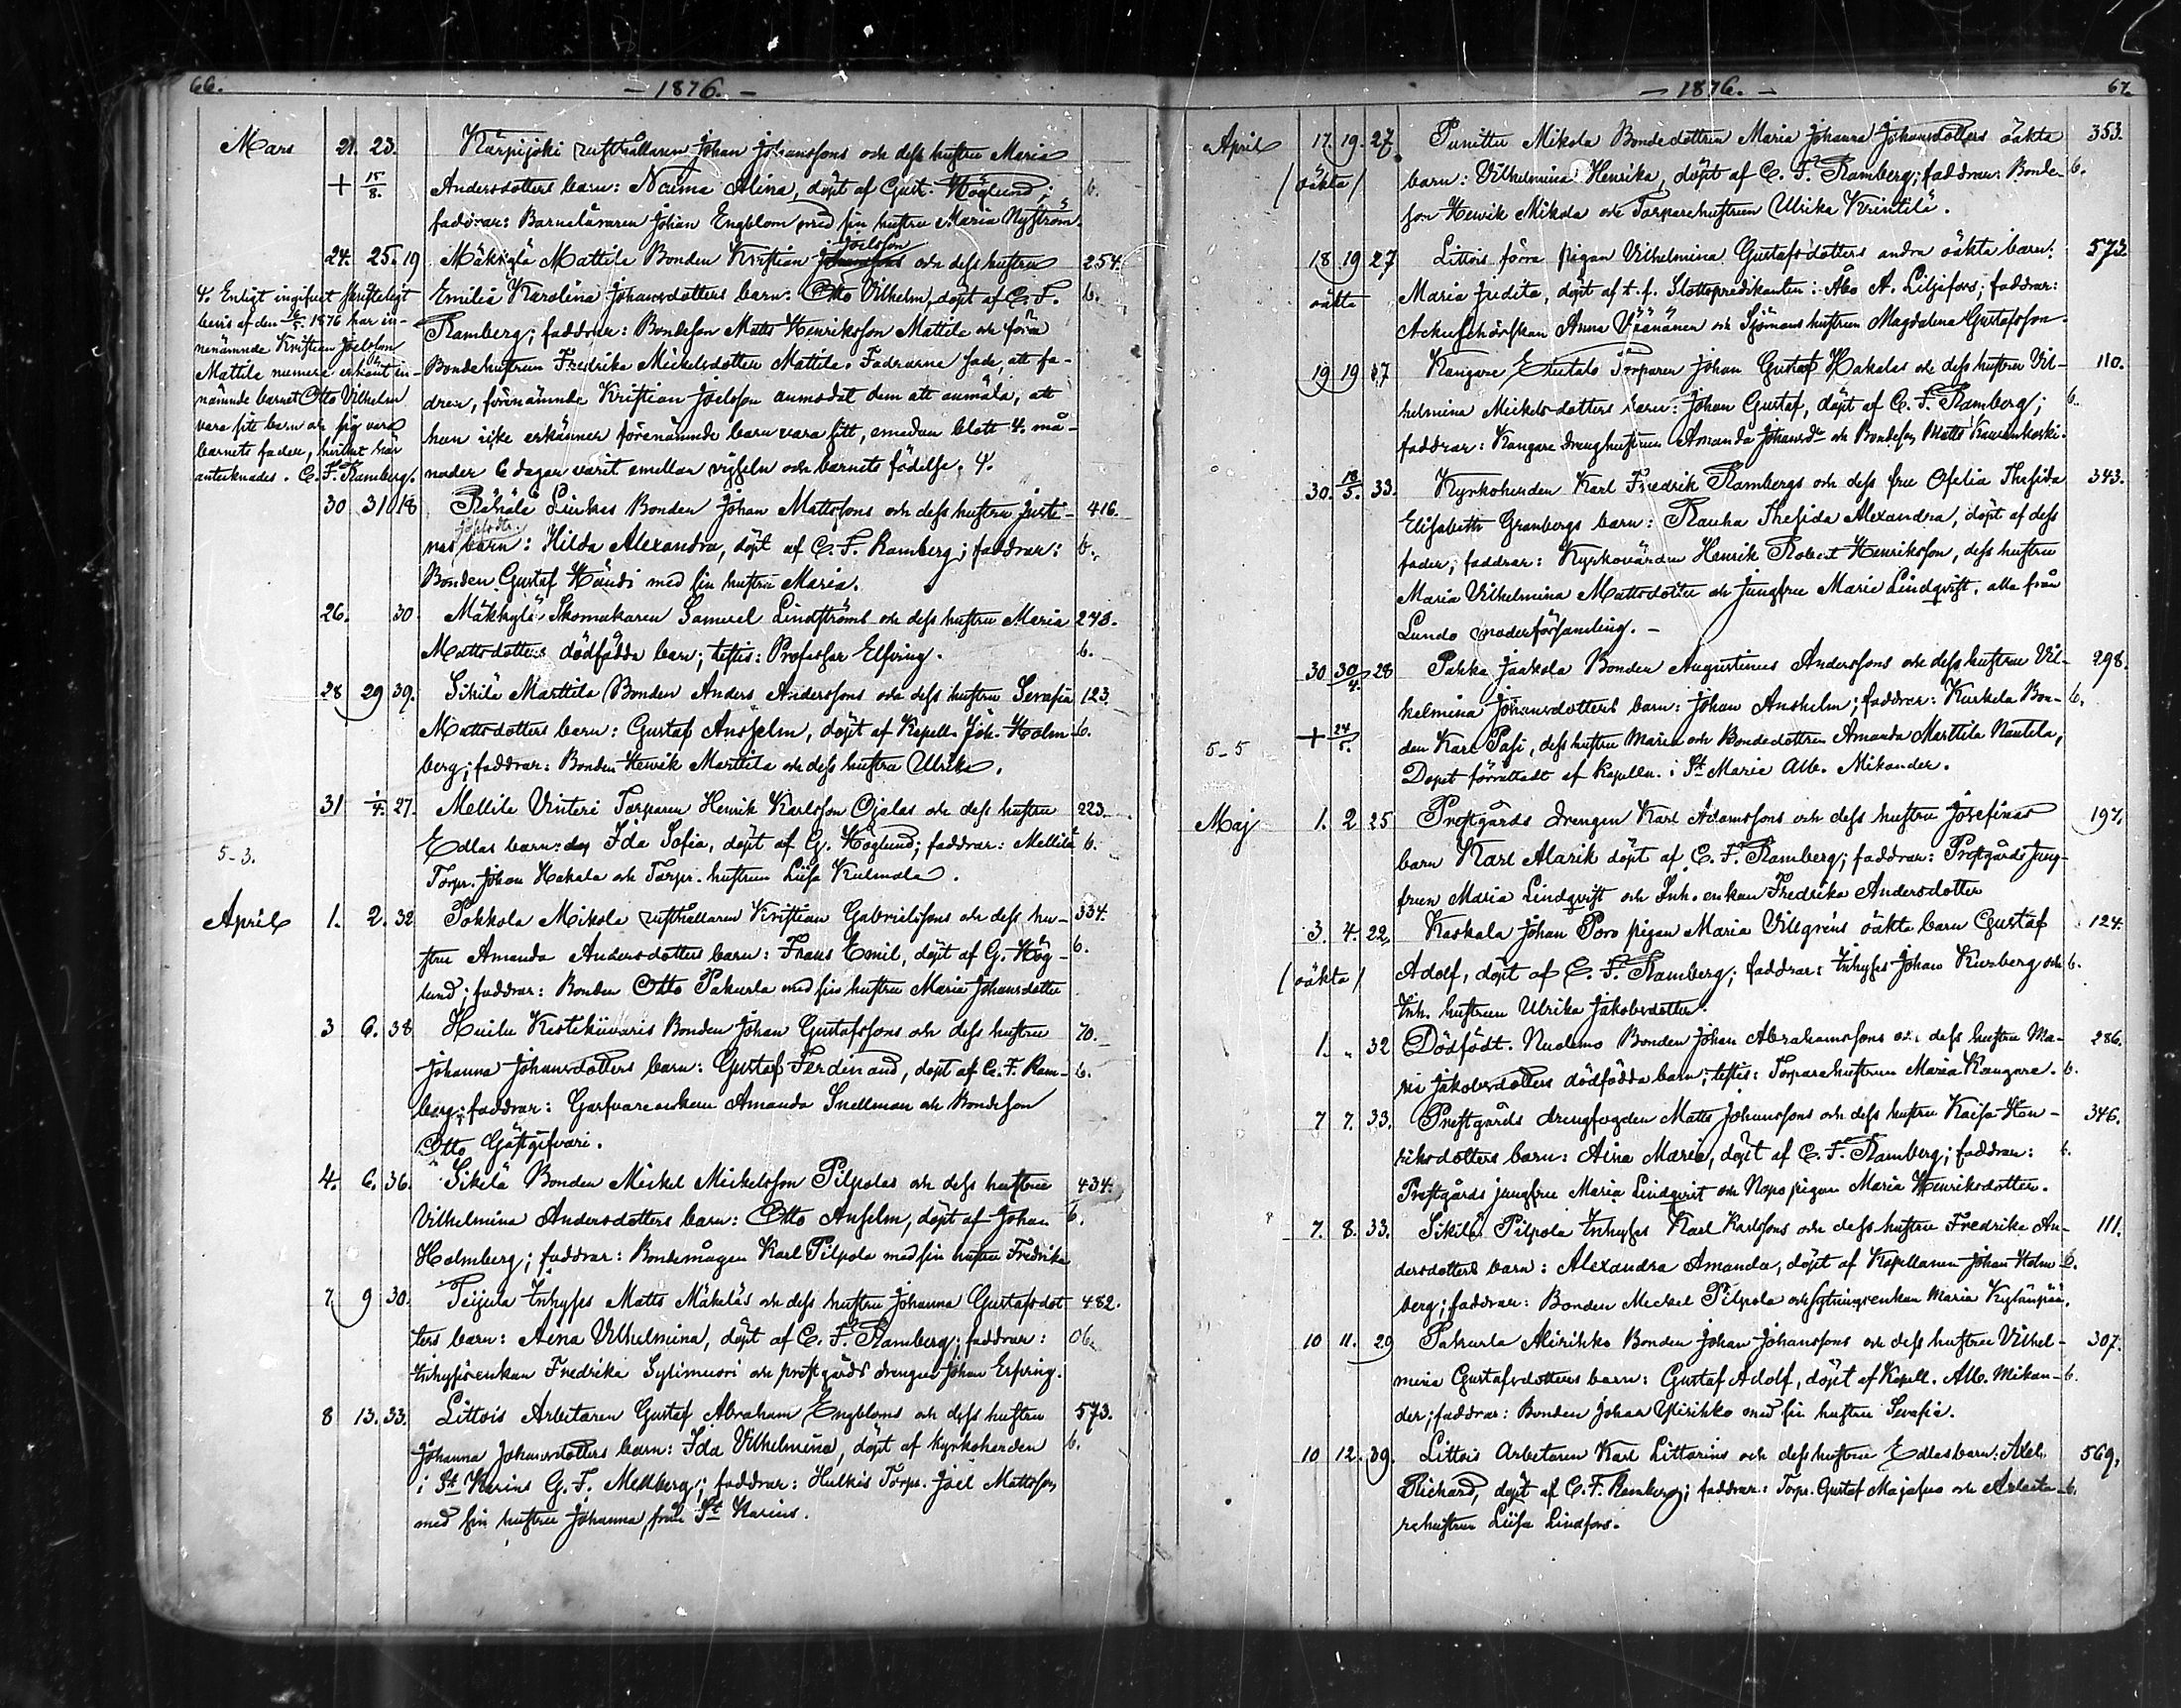 66. — 1876. —
Mars 21. 23. Kärpijoki rusthållaren Johan Johanssons och dess hustru Maria
+ 15/8. Andersdotters barn: Naima Alina, döpt af Gust. Höglund; b.
faddrar: Barnaläraren Johan Engblom med sin hustru Maria Nyström.
24. 25. 19 Mäkkylä Mattila Bonden Kristian Johanssons Joelsson och dess hustru 254.
Emilia Karolina Johansdotters barn: Otto Vilhelm, döpt af C. F. b.
Ramberg; faddrar: Bondeson Matts Henriksson Mattila och förra
Bondehustrun Fredrika Mickelsdotter Mattila. Faddrarne sade, att fa-
dren, förenämnde Kristian Joelsson anmodat dem att anmäla, att
han icke erkänner förenämnde barn vara sitt, emedan blott 4. må-
nader 6 dagar varit emellan vigseln och barnets födelse. 4.
4. Enligt ingifvet skrifteligt
bevis af den 16/5. 1876 har in-
nenämnde Kristian Joelsson
Mattila numera erkänt in-
nämnde barnet Otto Vilhelm
vara sitt barn och sig vara
barnets fader, hvilket här
antecknades. C. F. Ramberg.
30 31 18 Räkälä Liukas Bonden Johan Mattssons och dess hustru Justi- 416.
nas barn: Hilda Alexandra, döpt af C. F. Ramberg; faddrar: b.
Bonden Gustaf Händi med sin hustru Maria.
26. 30 Mäkkylä Skomakaren Samuel Lindströms och dess hustru Maria 243.
Mattsdotters dödfödda barn; testis: Professor Elfving. b.
28 29 39. Sikilä Marttila Bonden Anders Anderssons och dess hustru Serafia 123.
Mattsdotters barn: Gustaf Anshelm, döpt af Kapell. Joh. Holm- b.
berg; faddrar: Bonden Henrik Marttila och dess hustru Ulrika.
31 1/4. 27. Mellilä Vinteri Torparen Henrik Karlsson Ojalas och dess hustru 223.
Edlas barn: Ida Sofia, döpt af G. Höglund; faddrar: Mellilä b.
5-3. Torpr. Johan Hakala och Torpr. hustrun Liisa Kulmala.
April 1. 2. 32 Pokkola Mikola rusthållaren Kristian Gabrielssons och dess hu- 334.
stru Amanda Andersdotters barn: Frans Emil, döpt af G. Hög- b.
lund; faddrar: Bonden Otto Pakurla med sin hustru Maria Johansdotter
3 6. 38 Huilu Kestikiivaris Bonden Johan Gustafssons och dess hustru 70.
Johanna Johansdotters barn: Gustaf Ferdinand, döpt af C. F. Ram- b.
berg; faddrar: Garfvareenkan Amanda Snellman och Bondeson
Otto Gästgifvari.
4. 6. 36. Sikilä Bonden Mickel Mickelsson Pilpolas och dess hustru 434.
Vilhelmina Andersdotters barn: Otto Anselm, döpt af Johan b.
Holmberg; faddrar: Bondemågen Karl Pilpola med sin hustru Fredrika
7 9 30. Teijula Inhyses Matts Mäkeläs och dess hustru Johanna Gustafsdot- 482.
ters barn: Aena Vilhelmina, döpt af C. F. Ramberg; faddrar: 06.
Inhysesenkan Fredrika Sylimuori och prestgårds drengen Johan Erfving.
8 13. 33. Littois Arbetaren Gustaf Abraham Engbloms och dess hustru 573.
Johanna Johansdotters barn: Ida Vilhelmina, döpt af kyrkoherden b.
i St Karins G. F. Mellberg; faddrar: Hulkis Torpr. Joel Mattsson
med sin hustru Johanna, från St Karins.
— 1876. — 67.
April 17. 19. 27. Punittu Mikola Bondedottren Maria Johanna Johansdotters oäkta 353.
/oäkta/ barn: Vilhelmina Henrika, döpt af C. F. Ramberg; faddrar: Bonde- b.
son Henrik Mikola och Torparehustrun Ulrika Krintilä.
18 19 27 Littois förra pigan Vilhelmina Gustafsdotters andra oäkta barn: 573.
oäkta Maria Judita, döpt af t. f. Slottspredikanten i Åbo A. Liljefors; faddrar:
Ackuschörskan Anna Väänänen och Sjömanshustrun Magdalena Gustafsson.
19 19 47 Kangare Torparen Johan Gustaf Hakalas och dess hustru Vil- 110.
helmina Mickelsdotters barn: Johan Gustaf, döpt af C. F. Ramberg; b.
faddrar: Kangare drenghustrun Amanda Johansdr och Bondeson Matts
30. 18/5. 33. Kyrkoherden Karl Fredrik Rambergs och dess fru Ofelia Thesida 343.
Elisabeth Granbergs barn: Rauha Thesida Alexandra, döpt af dess
fader; faddrar: Kyrkovärden Henrik Robert Henriksson, dess hustru
Maria Vilhelmina Mattsdotter och Jungfru Maria Lindqvist, alla från
Lundo moderförsamling. —
30 30/4. 28 Pahka Jaakola Bonden Augustinus Anderssons och dess hustru Vil- 298.
helmina Johansdotters barn: Johan Anshelm; faddrar: Kurkela Bon- b.
5-5 + 24/5. den Karl Pasi, dess hustru Maria och Bondedottren Amanda Marttila Nautela,
Dopet förrättadt af Kapelln. i St Marie Alb. Mikander.
Maj 1. 2 25 Prestgårds drengen Karl Adamssons och dess hustru Josefinas 197.
barn Karl Alarik döpt af C. F. Ramberg; faddrar: Prestgårds Jung-
frun Maria Lindqvist och Inh. enkan Fredrika Andersdotter
3. 4. 22. Kaskala Johan Poro pigan Maria Villgréns oäkta barn Gustaf 124.
/oäkta/ Adolf, döpt af C. F. Ramberg; faddrar: Inhyses Johan Kurberg och b.
Inh. hustrun Ulrika Jakobsdotter.
1. „ 32 Dödfödt. Nuolemo Bonden Johan Abrahamssons och dess hustru Ma- 286.
ria Jakobsdotters dödfödda barn; testis: Torparehustrun Maria Kangare. b.
7 7. 33. Prestgårds drengfogden Matts Johanssons och dess hustru Kaisa Hen- 346.
riksdotters barn: Aina Maria, döpt af C. F. Ramberg; faddrar: b.
Prestgårds jungfru Maria Lindqvist och Nopo pigan Maria Henriksdotter.
7. 8. 33. Sikilä Pilpola Inhyses Karl Karlssons och dess hustru Fredrika An- 111.
dersdotters barn: Alexandra Amanda, döpt af Kapellanen Johan Holm- b.
berg; faddrar: Bonden Mickel Pilpola och sytningsenkan Maria Kylänpää.
10 11. 29 Pakurla Alirikko Bonden Johan Johanssons och dess hustru Vilhel- 307.
mina Gustafsdotters barn: Gustaf Adolf, döpt af Kapell. Alb. Mikan- b.
der; faddrar: Bonden Johan Ylirikko med sin hustru Serafia.
10 12. 39. Littois Arbetaren Karl Littorins och dess hustru Edlas barn: Axel 569.
Richard, döpt af C. F. Ramberg; faddrar: Torpr. Gustaf Majafus och Arbeta- b.
rehustrun Liisa Lindfors.